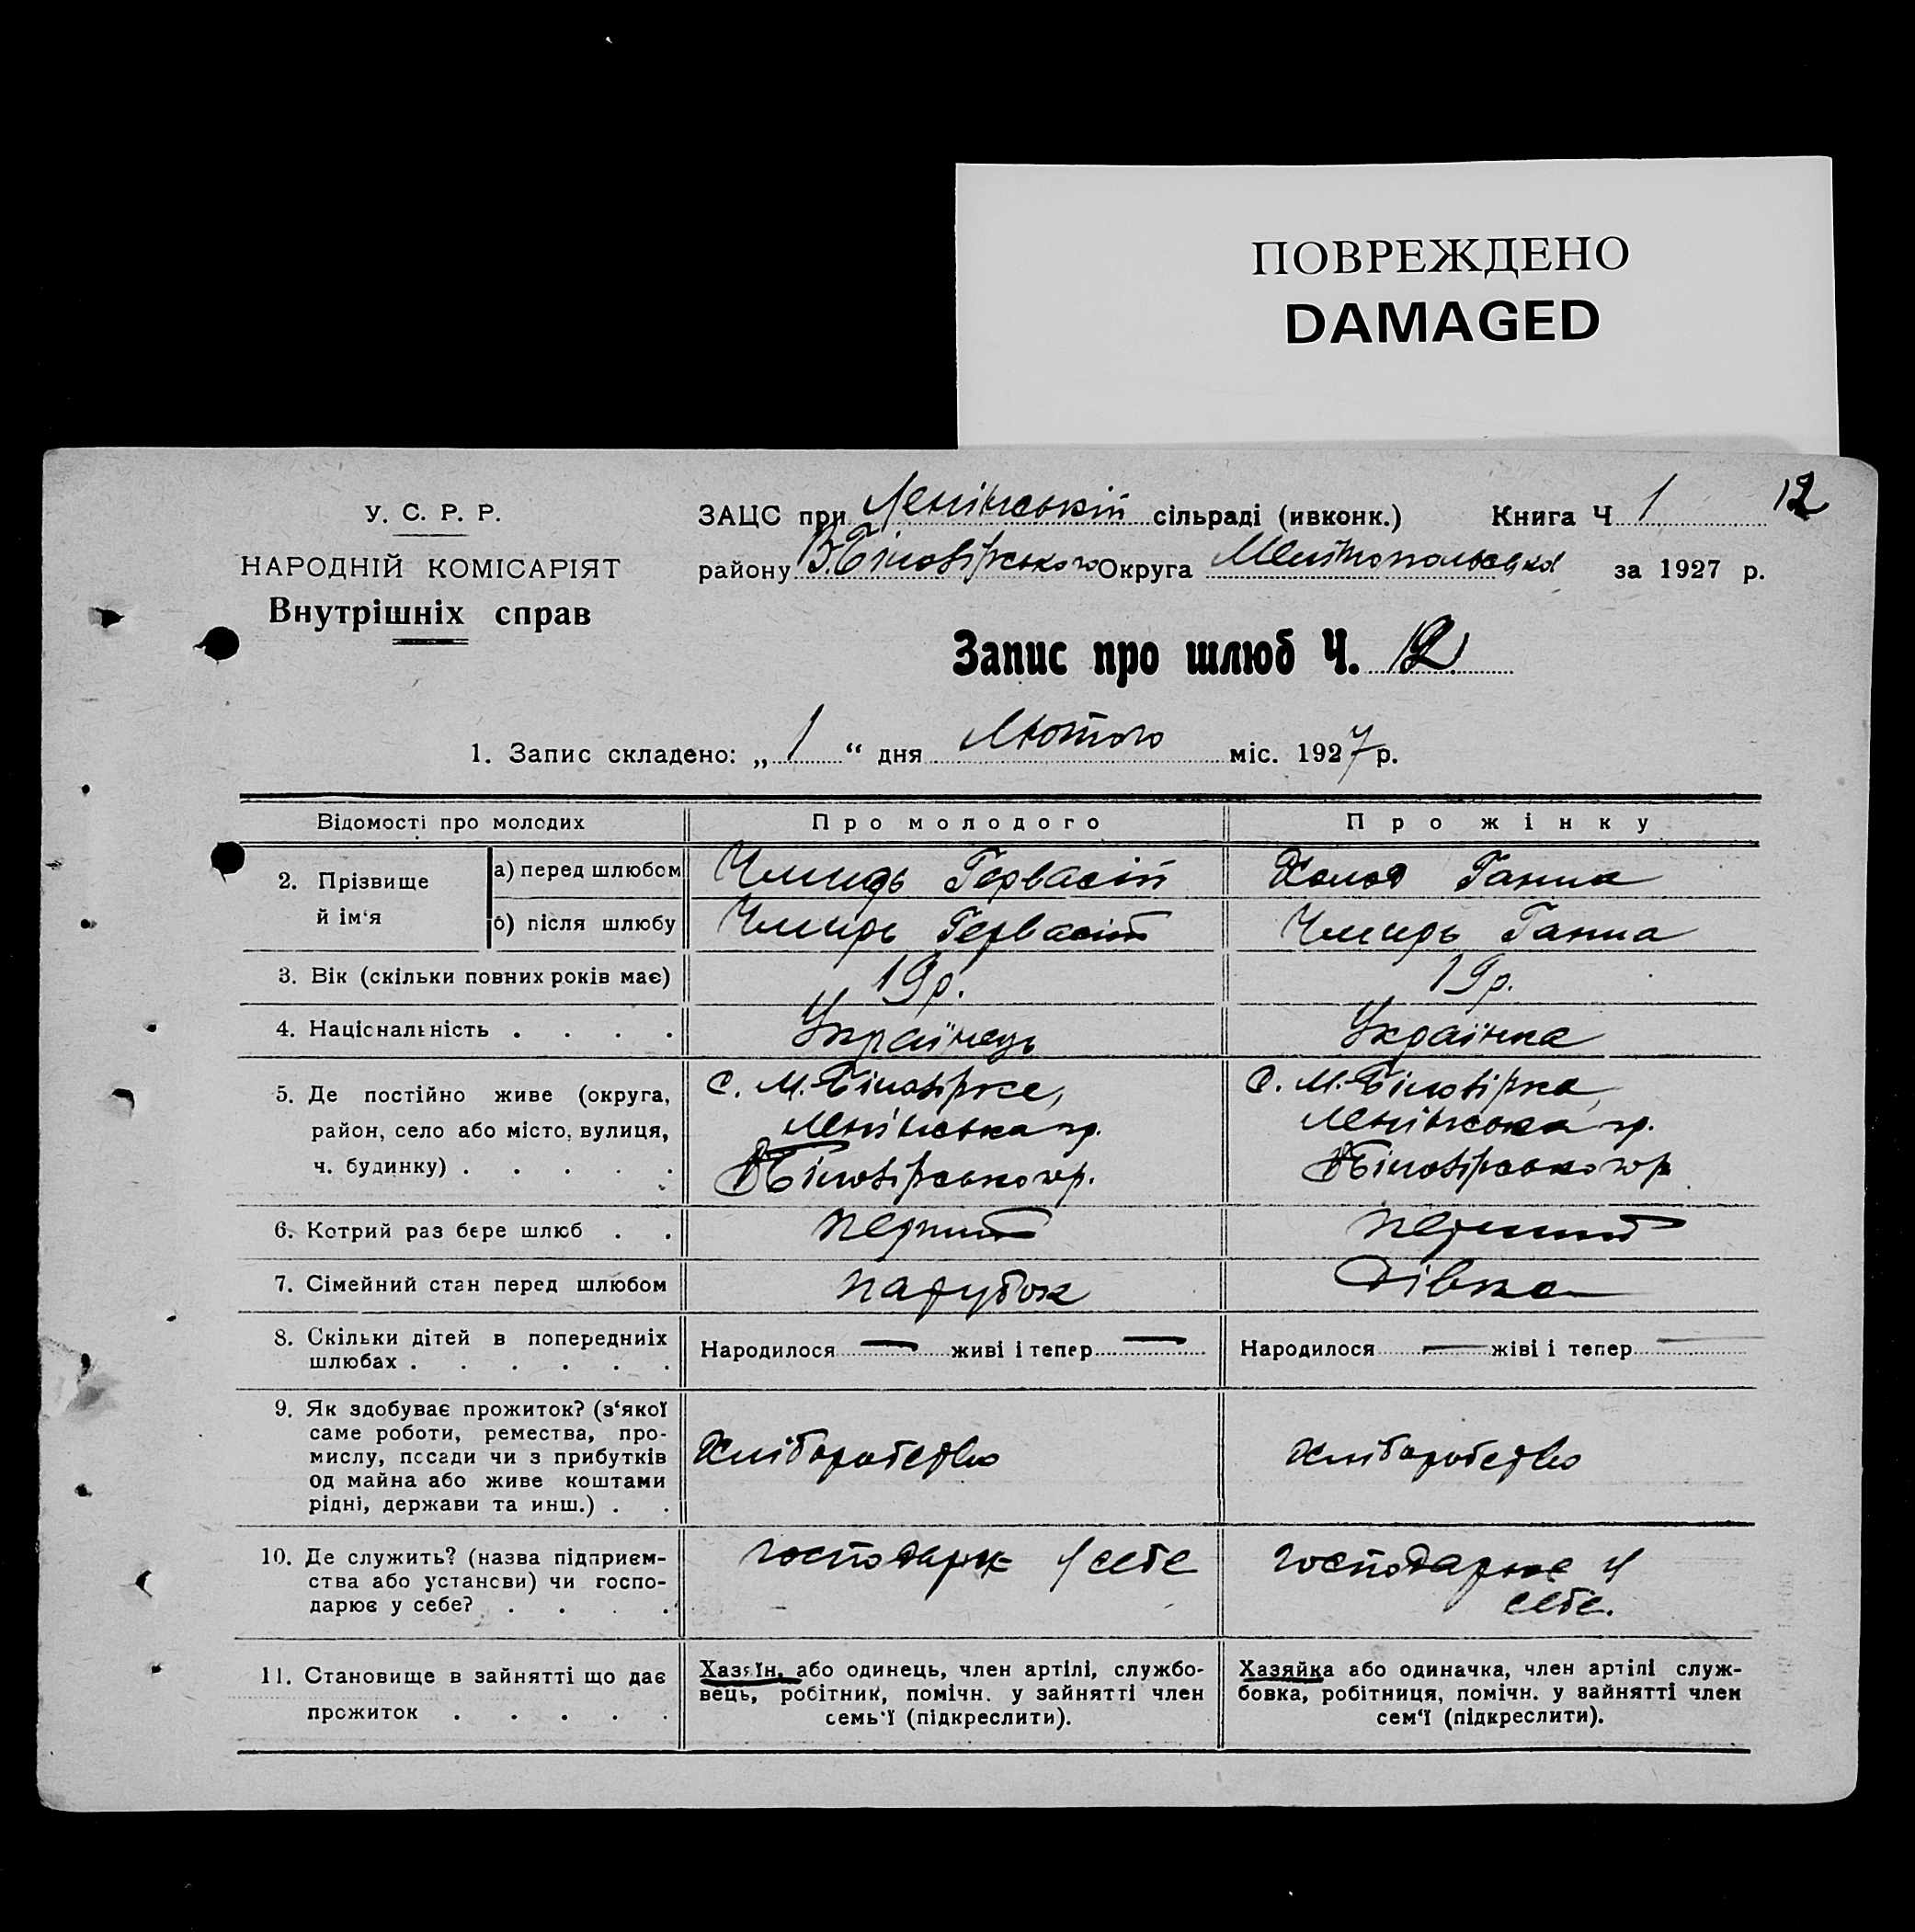 ПОВРЕЖДЕНО
DAMAGED
У. С. Р. Р.
НАРОДНІЙ КОМІСАРІЯТ
Внутрішніх справ
ЗАЦС при Ленінській сільраді (ивконк.) Книга Ч 1 12
району В.Білозірського Округа за 1927 р.
Запис про шлюб Ч. 12
1. Запис складено: „ 1 “ дня Лютого міс. 1927 р.
Відомості про молодих Про молодого Про жінку
2. Прізвище й ім‘я
а) перед шлюбом Чмирь Гервасій Холод Ганна
б) після шлюбу Чмирь Гервасій Чмирь Ганна
3. Вік (скільки повних років має) 19 р. 19 р.
4. Національність . . . . Українець Українка
5. Де постійно живе (округа, с. М.-Білозірка, С. М.-Білозірка,
район, село або місто, вулиця, Ленінська Ленінська
ч. будинку) . . . . . Білозірського р. Білозірського р
6. Котрий раз бере шлюб . . перший перший
7. Сімейний стан перед шлюбом парубок дівка
8. Скільки дітей в попередниіх
шлюбах . . . . . . Народилося — живі і тепер — Народилося — жіві і тепер —
9. Як здобуває прожиток? (з‘якої
саме роботи, ремества, про-
мислу, посади чи з прибутків Хліборобство Хліборобство
од майна або живе коштами
рідні, держави та инш.) . .
10. Де служить? (назва підприєм- господарює у себе господарює у
ства або установи) чи госпо- себе.
дарює у себе? . . . .
11. Становище в зайнятті що дає
прожиток . . . . .
Хазяїн, або одинець, член артілі, службо-
вець, робітник, помічн. у зайнятті член
семь‘ї (підкреслити).
Хазяйка або одиначка, член артілі служ-
бовка, робітниця, помічн. у зайнятті член
сем‘ї (підкреслити).